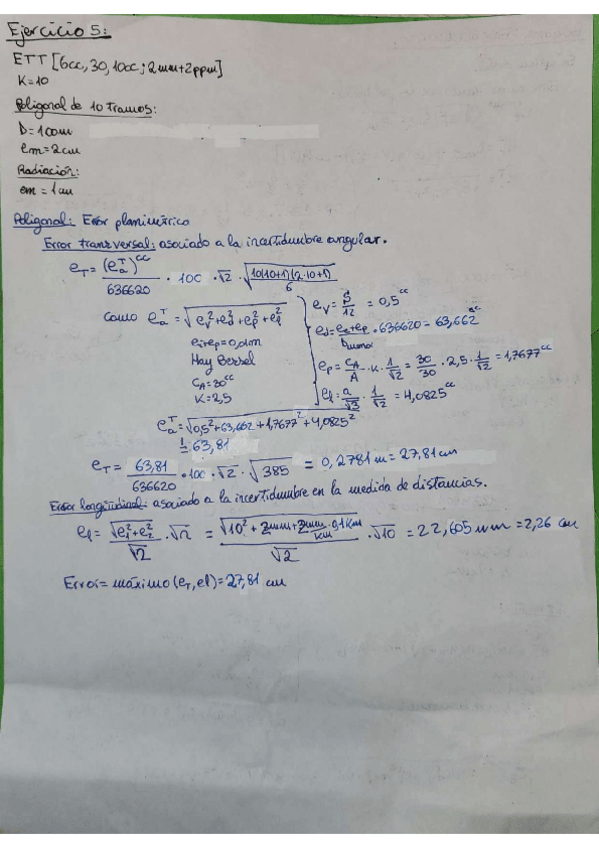 Ejercicio 5:
ETT [6cc, 30, 10cc; 2mm+2ppm]
K=10
Poligonal de 10 Tramos:
D=100m
em=2cm
Radiación:
em = 1cm
Poligonal: Error planimétrico
Error transversal: asociado a la incertidumbre angular.
e_T = (e_a^T)^cc / 636620 · 100 · √2 · √(10(10+1)(2·10+1) / 6)
como e_a^T = √(e_v²+e_d²+e_p²+e_l²)
ei+ep=0,01m
Hay Bessel
C_A=30^cc
K=2,5
e_v = S/12 = 0,5^cc
e_d = (e_e+e_p)/Dumor · 636620 = 63,662^cc
e_p = C_A/A · K · 1/√2 = 30/30 · 2,5 · 1/√2 = 1,7677^cc
e_l = a/√3 · 1/√2 = 4,0825^cc
e_a^T = √(0,5²+63,662+1,7677²+4,0825²)
= 63,81
e_T = 63,81/636620 · 100 · √2 · √385 = 0,2781 m = 27,81 cm
Error longitudinal: asociado a la incertidumbre en la medida de distancias.
e_l = √(e_1²+e_2²)/√2 · √n = √(10² + 2mm + 2mm/km · 0,1km)/√2 · √10 = 22,605 mm = 2,26 cm
Error = máximo (e_T, el) = 27,81 cm